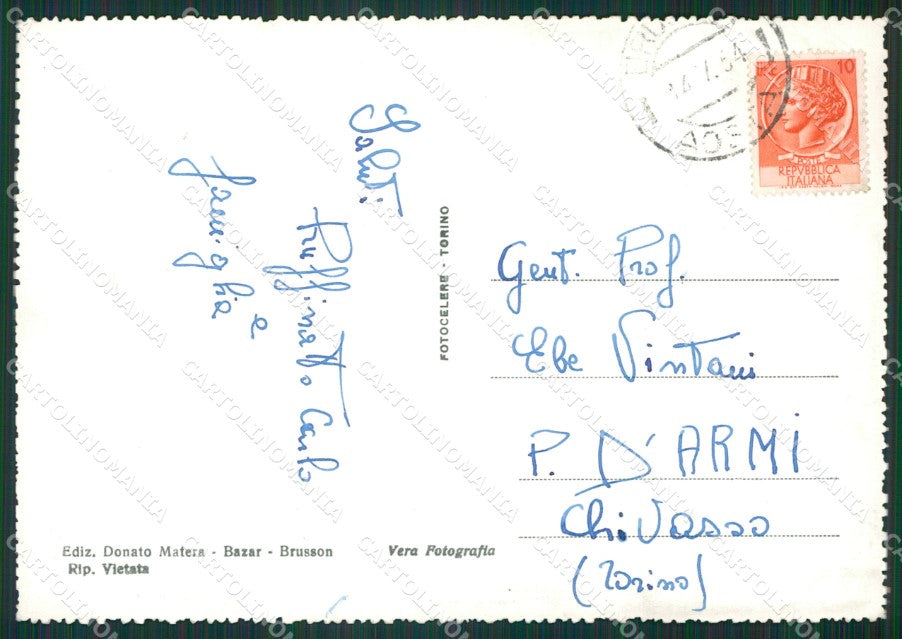 Saluti
Ruffinatto Carlo
e
famiglia
FOTOCELERE - TORINO
Gent. Prof.
Ebe Vintani
P. D'ARMI
Chivasso
(Torino)
Ediz. Donato Matera - Bazar - Brusson
Rip. Vietata
Vera Fotografia
LIRE 10
POSTE
REPVBBLICA
ITALIANA
AOSTA
CARTOLINOMANIA